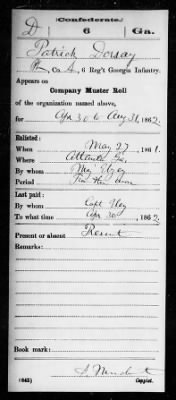 Confederate
D 6 Ga.
Patrick Dorsay
Co. A, 6 Reg't Georgia Infantry.
Appears on
Company Muster Roll
of the organization named above,
for Apr 30 to Aug 31, 1862.
Enlisted:
When May 27, 1861.
Where Atlanta Ga.
By whom Maj
Period
Last paid:
By whom Capt
To what time Apr 30, 1862
Present or absent Present
Remarks:
Book mark:
(642) Copyist.